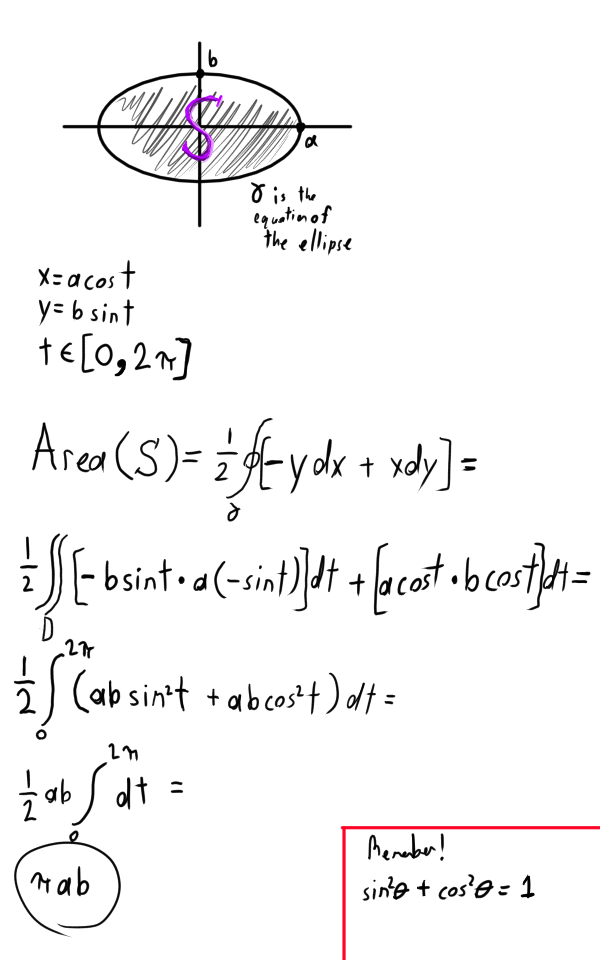 b
S
a
γ is the
equation of
the ellipse
x = a cos t
y = b sin t
t ∈ [0, 2π]
Area(S) = 1/2 ∮_γ [-y dx + x dy] =
1/2 ∬_D [-b sin t · a(-sin t)] dt + [a cos t · b cos t] dt =
1/2 ∫_0^{2π} (ab sin²t + ab cos²t) dt =
1/2 ab ∫_0^{2π} dt =
π ab
Remember!
sin²θ + cos²θ = 1